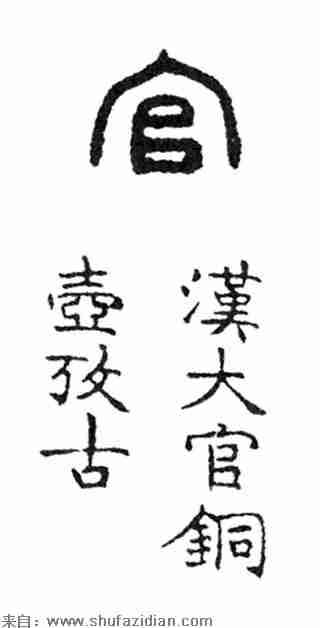 官
漢大官銅
壺攷古
来自：www.shufazidian.com